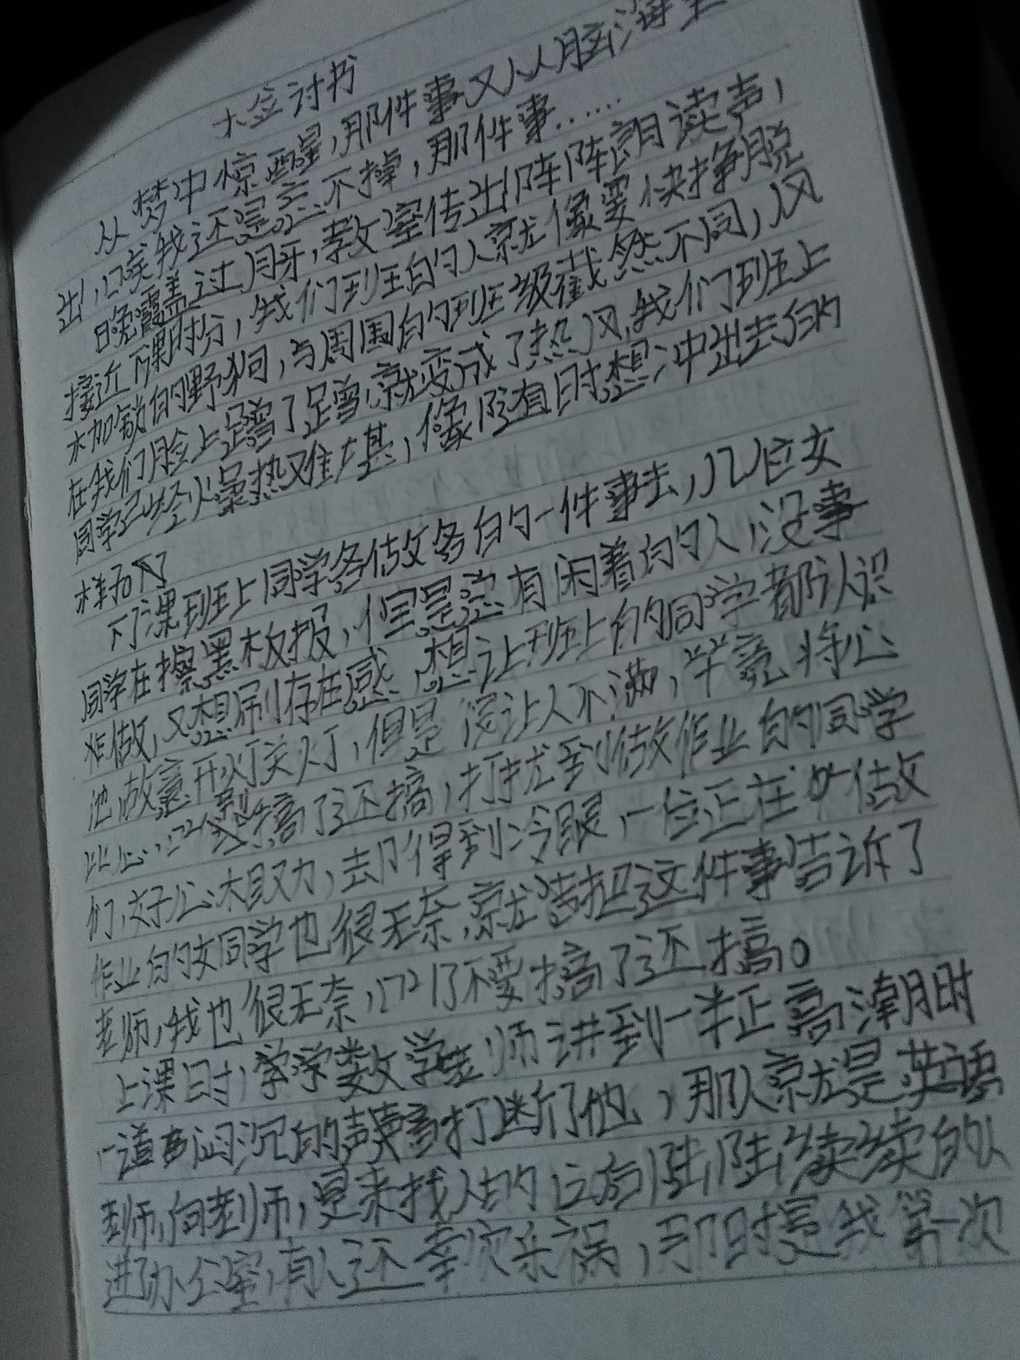 大金讨书
从梦中惊醒，那件事又从脑海里
出，唉我还是忘不掉，那件事……
晚霞盖过月牙，教室传出阵阵朗读声，
接近下课时分，我们到班的人就像要快挣脱
木加锁的野狗，与周围的班级截然不同，风
在我们脸上蹭了蹭，就变成了热风，我们班上
同学已经火燥热难堪，像随时想冲出去的
样子
下课班上同学各做各的一件事去，几位女
同学在擦黑板报，但是总有闲着的人，没事
做，又想刷存在感，想让班上的同学都认识
他，故意开灯关灯，但是没让人不满，毕竟将心
比心，搞了还搞，打扰到做作业的同学
们，得到冷眼，一位正在做
作业的女同学也很无奈，就把这件事告诉了
老师，我也很无奈，不要搞了还搞。
上课时，学数学老师讲到一半正高潮时
一道声闷沉的声音打断了他，那人就是英语
老师，向老师，是来找人的，后陆陆续续的人
进了办公室，有人还幸灾乐祸，那时是我第一次